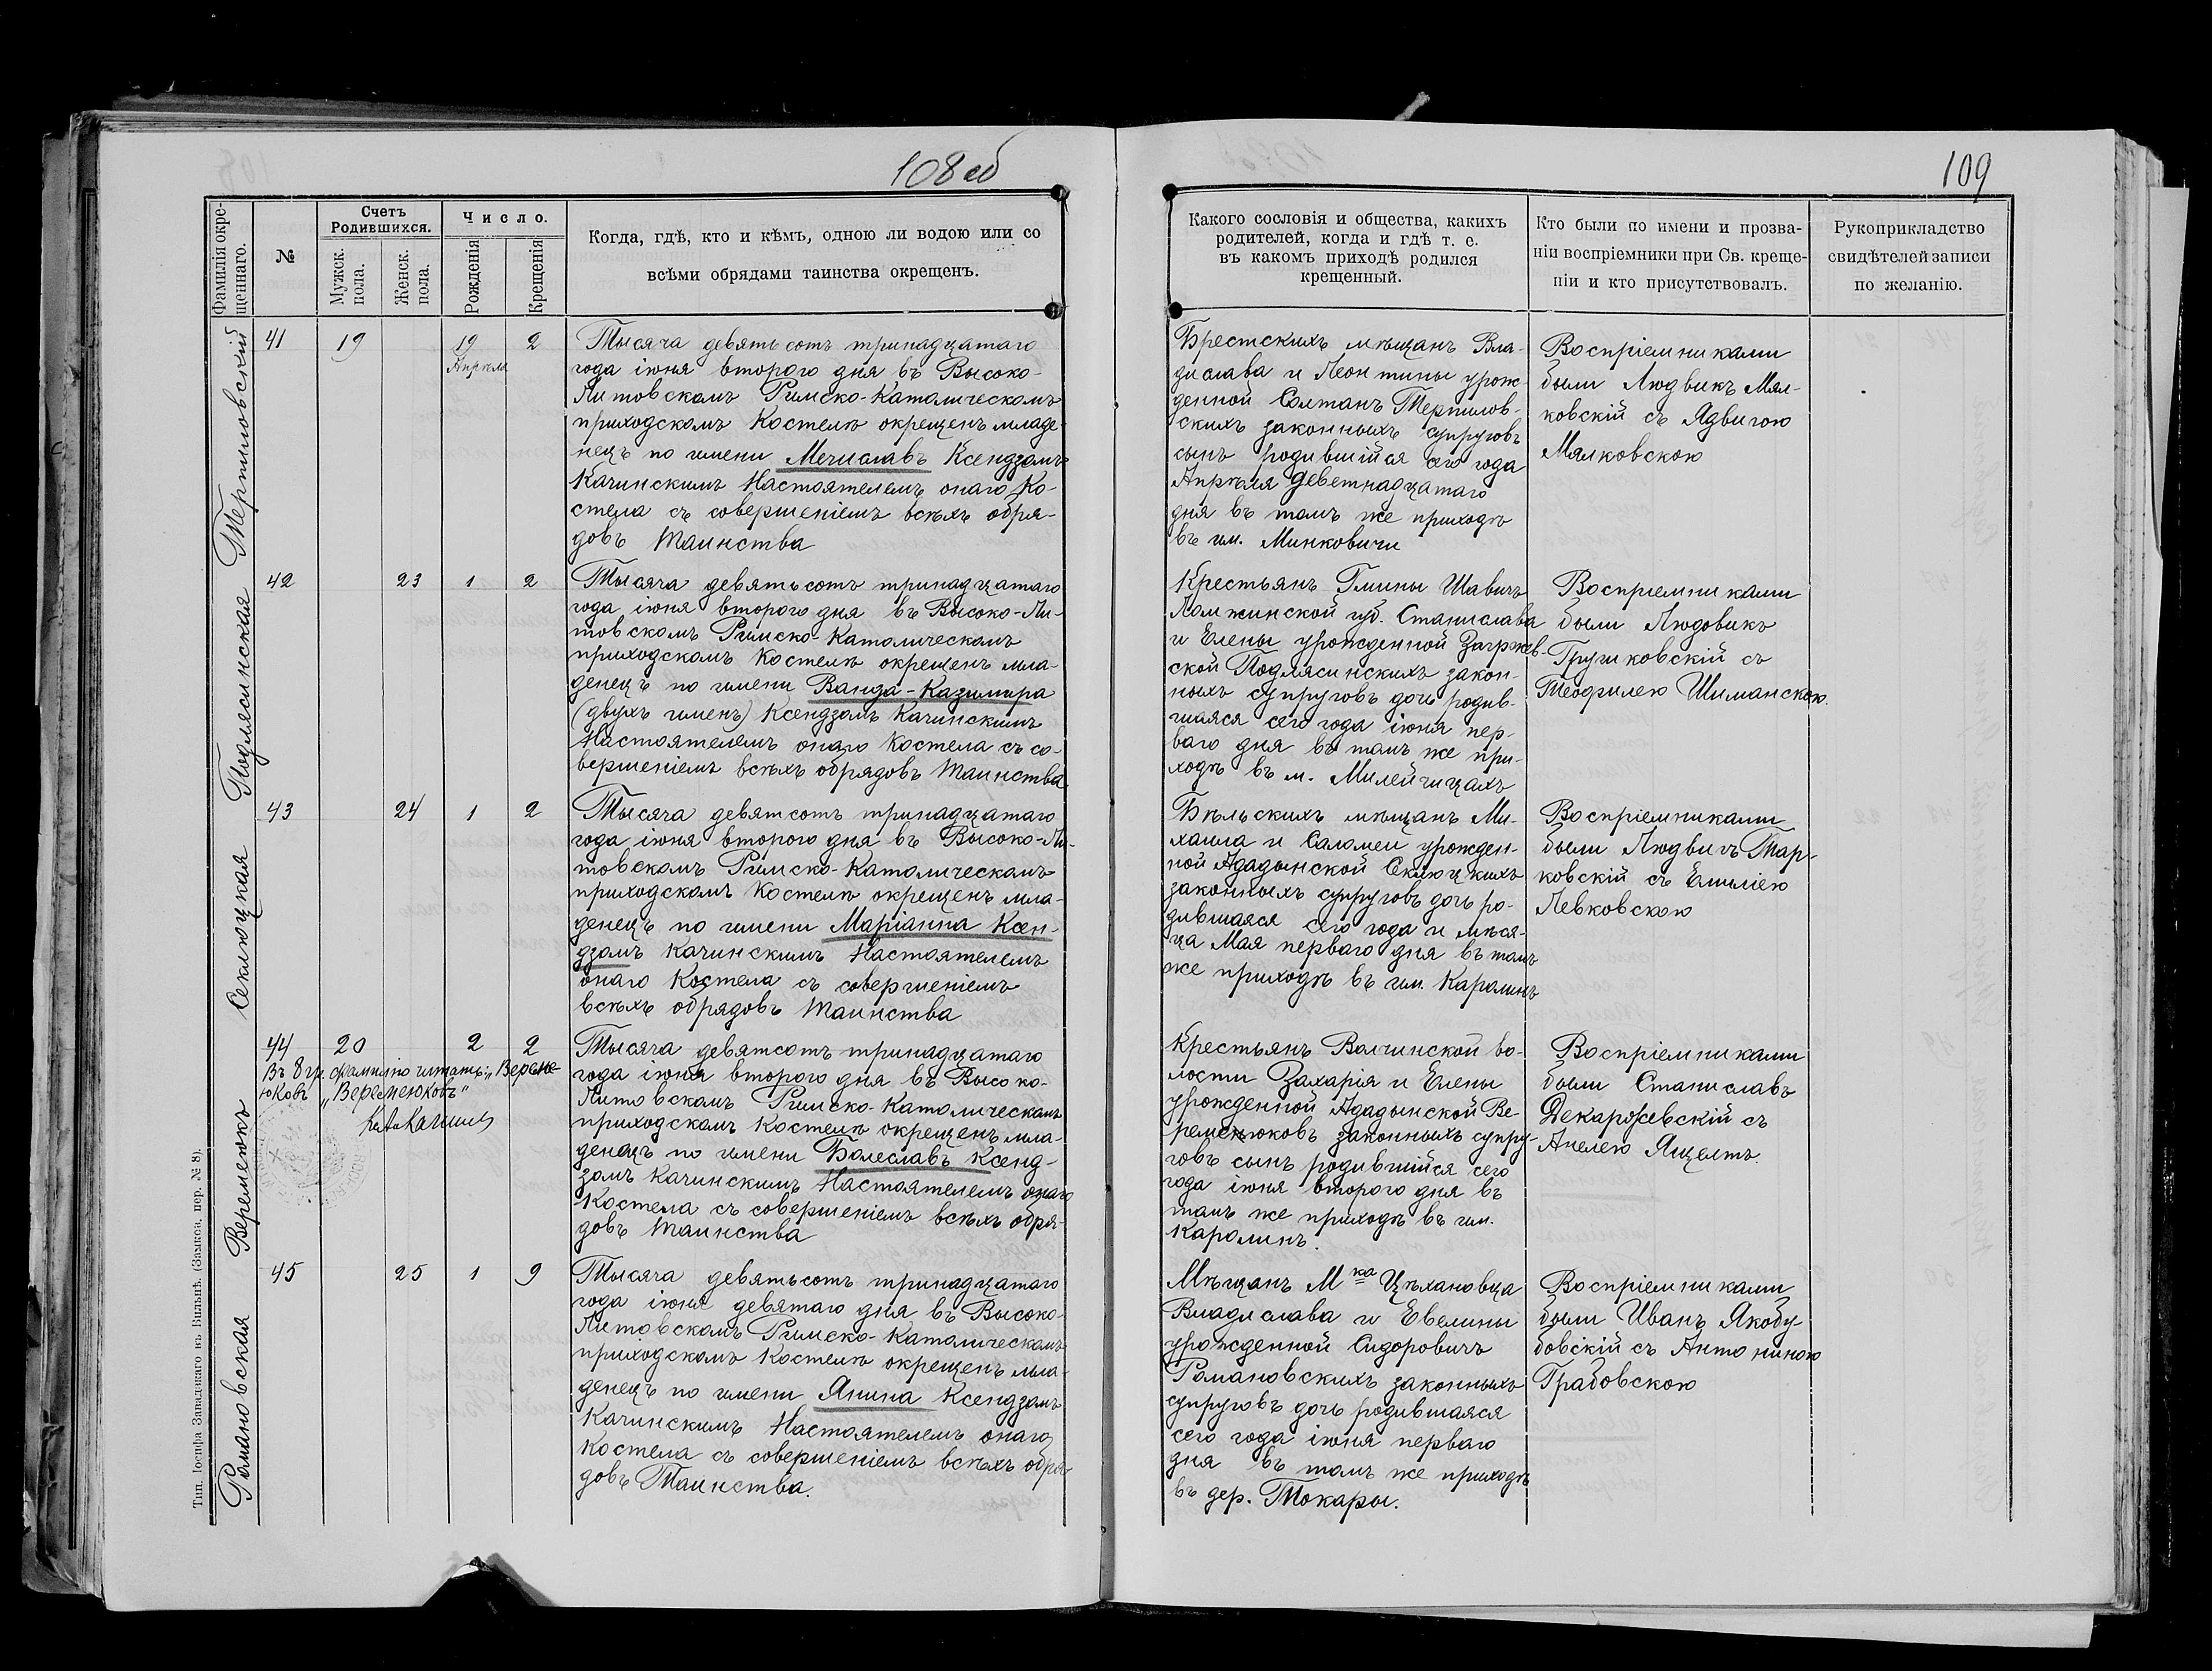 108 об
Фамилія окре-
щеннаго.
№
Счетъ
Родившихся.
Мужск.
пола.
Женск.
пола.
Число.
Рожденія
Крещенія
Когда, гдѣ, кто и кѣмъ, одною ли водою или со
всѣми обрядами таинства окрещенъ.
Терпиловскій
41
19
19
Апрѣля
2
Тысяча девятьсотъ тринадцатаго
года іюня второго дня въ Высоко-
Литовскомъ Римско-Католическомъ
приходскомъ Костелѣ окрещенъ младе-
нецъ по имени Мечиславъ Ксендзомъ
Качинскимъ Настоятелемъ онаго Ко-
стела съ совершеніемъ всѣхъ обря-
довъ Таинства
Подлясинская
42
23
1
2
Тысяча девятьсотъ тринадцатаго
года іюня второго дня въ Высоко-Ли-
товскомъ Римско-Католическомъ
приходскомъ Костелѣ окрещенъ мла-
денецъ по имени Ванда-Казимира
(двухъ именъ) Ксендзомъ Качинскимъ
Настоятелемъ онаго Костела съ со-
вершеніемъ всѣхъ обрядовъ Таинства
Секлюцкая
43
24
1
2
Тысяча девятсотъ тринадцатаго
года іюня второго дня въ Высоко-Ли-
товскомъ Римско-Католическомъ
приходскомъ Костелѣ окрещенъ мла-
денецъ по имени Маріанна Ксен-
дзомъ Качинскимъ Настоятелемъ
онаго Костела съ совершеніемъ
всѣхъ обрядовъ Таинства
Веремеюкъ
44
20
2
2
Въ 8 гр. фамилію читать: „Вереме-
юковъ „Веремеюковъ“
Тысяча девятсотъ тринадцатаго
года іюня второго дня въ Высоко-
Литовскомъ Римско-Католическомъ
приходскомъ Костелѣ окрещенъ мла-
денецъ по имени Болеславъ Ксенд-
зомъ Качинскимъ Настоятелемъ онаго
Костела съ совершеніемъ всѣхъ обря-
довъ Таинства
Романовская
45
25
1
9
Тысяча девятьсотъ тринадцатаго
года іюня девятаго дня въ Высоко-
Литовскомъ Римско-Католическомъ
приходскомъ Костелѣ окрещенъ мла-
денецъ по имени Янина Ксендзомъ
Качинскимъ Настоятелемъ онаго
Костела съ совершеніемъ всѣхъ обря-
довъ Таинства.
Тип. Іосифа Завадзкаго въ Вильнѣ. (Замков. пер. № 8).
109
Какого сословія и общества, какихъ
родителей, когда и гдѣ т. е.
въ какомъ приходѣ родился
крещенный.
Кто были по имени и прозва-
ніи воспріемники при Св. креще-
ніи и кто присутствовалъ.
Рукоприкладство
свидѣтелей записи
по желанію.
Брестскихъ мѣщанъ Вла-
дислава и Леонтины урож-
денной Солтанъ Терпилов-
скихъ законныхъ супруговъ
сынъ родившійся сего года
Апрѣля деветнадцатаго
дня въ томъ же приходѣ
въ им. Минковичи
Воспріемниками
были Людвикъ Мял-
ковскій съ Ядвигою
Мялковскою
Крестьянъ Гмины Шавичъ
Ломжинской губ. Станислава
и Елены урожденной Загржев-
ской Подлясинскихъ закон-
ныхъ супруговъ дочь родив-
шаяся сего года іюня пер-
ваго дня въ томъ же при-
ходѣ въ м. Милейчицахъ
Воспріемниками
были Людовикъ
съ
Теофилею Шиманскою.
Бѣльскихъ мѣщанъ Ми-
хаила и Саломеи урожден-
ной Ададынской Секлюцкихъ
законныхъ супруговъ дочь ро-
дившаяся сего года и мѣся-
ца Мая перваго дня въ томъ
же приходѣ въ им. Каролинъ
Воспріемниками
были Людвигъ Тар-
ковскій съ Емиліею
Левковскою
Крестьянъ Волчинской во-
лости Захарія и Елены
урожденной Ададынской Ве-
ремеюковъ законныхъ супру-
говъ сынъ родившійся сего
года іюня второго дня въ
томъ же приходѣ въ им.
Каролинъ.
Воспріемниками
были Станиславъ
съ
Анелею
Мѣщанъ Мка Цѣхановца
Владислава и Евелины
урожденной Сидоровичъ
Романовскихъ законныхъ
супруговъ дочь родившаяся
сего года іюня перваго
дня въ томъ же приходѣ
въ дер. Токары.
Воспріемниками
были Иванъ Якобу-
бовскій съ Антониною
Грабовскою